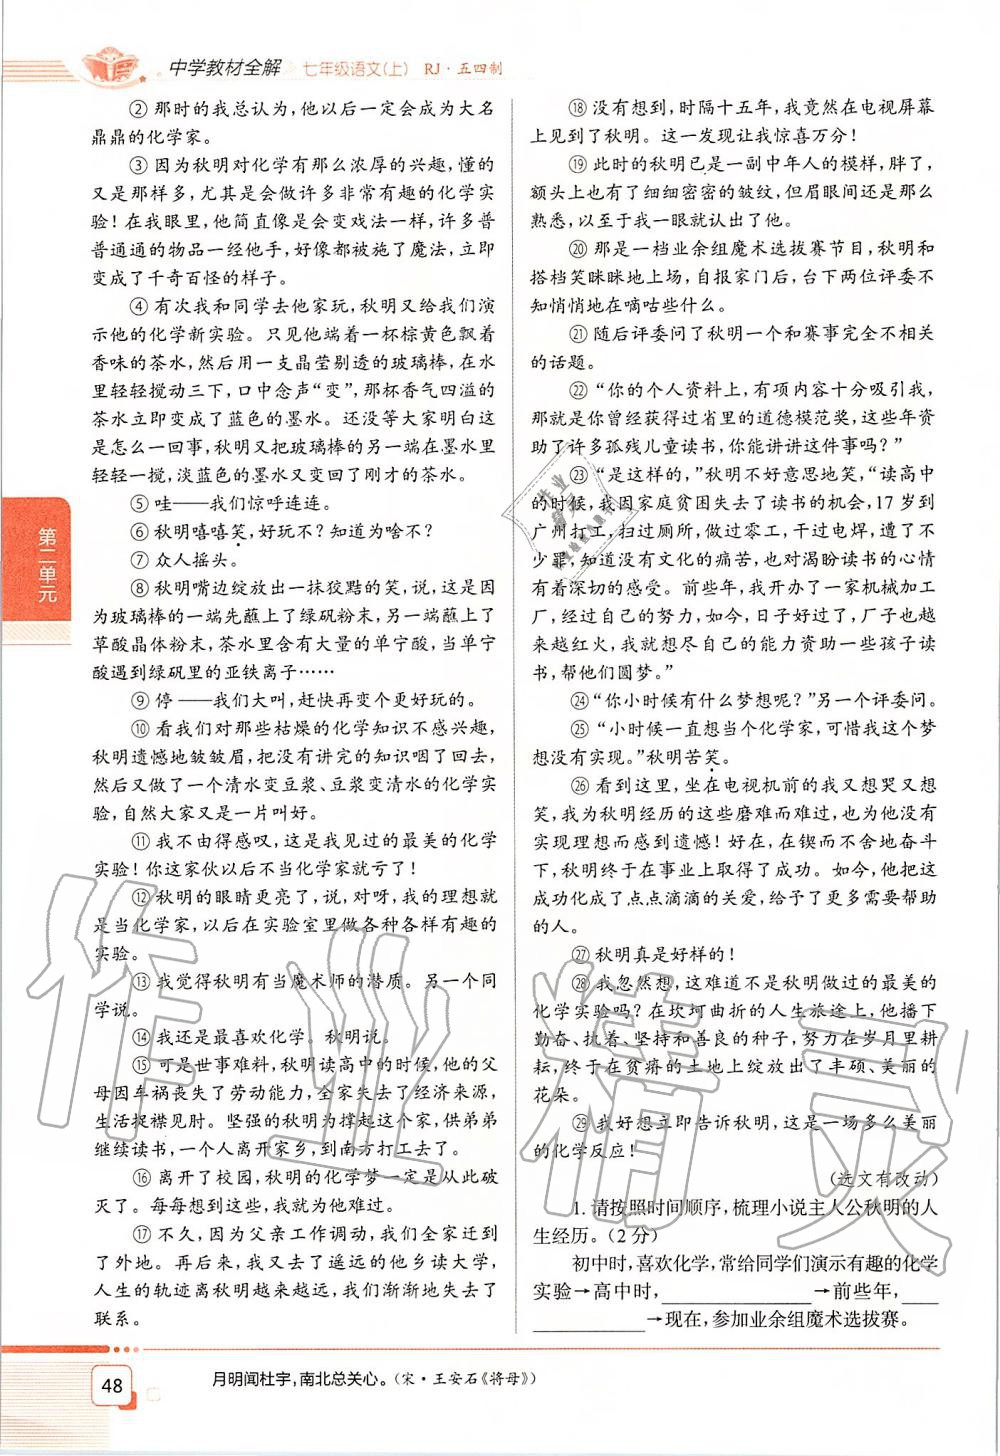 中学教材全解 七年级语文(上) RJ·五四制
② 那时的我总认为,他以后一定会成为大名
鼎鼎的化学家。
③ 因为秋明对化学有那么浓厚的兴趣,懂的
又是那样多,尤其是会做许多非常有趣的化学实
验!在我眼里,他简直像是会变戏法一样,许多普
普通通的物品一经他手,好像都被施了魔法,立即
变成了千奇百怪的样子。
④ 有次我和同学去他家玩,秋明又给我们演
示他的化学新实验。只见他端着一杯棕黄色飘着
香味的茶水,然后用一支晶莹剔透的玻璃棒,在水
里轻轻搅动三下,口中念声“变”,那杯香气四溢的
茶水立即变成了蓝色的墨水。还没等大家明白这
是怎么一回事,秋明又把玻璃棒的另一端在墨水里
轻轻一搅,淡蓝色的墨水又变回了刚才的茶水。
⑤ 哇——我们惊呼连连。
⑥ 秋明嘻嘻笑,好玩不?知道为啥不?
⑦ 众人摇头。
⑧ 秋明嘴边绽放出一抹狡黠的笑,说,这是因
为玻璃棒的一端先蘸上了绿矾粉末,另一端蘸上了
草酸晶体粉末,茶水里含有大量的单宁酸,当单宁
酸遇到绿矾里的亚铁离子……
⑨ 停——我们大叫,赶快再变个更好玩的。
⑩ 看我们对那些枯燥的化学知识不感兴趣,
秋明遗憾地皱皱眉,把没有讲完的知识咽了回去,
然后又做了一个清水变豆浆、豆浆变清水的化学实
验,自然大家又是一片叫好。
⑪ 我不由得感叹,这是我见过的最美的化学
实验!你这家伙以后不当化学家就亏了!
⑫ 秋明的眼睛更亮了,说,对呀,我的理想就
是当化学家,以后在实验室里做各种各样有趣的
实验。
⑬ 我觉得秋明有当魔术师的潜质。另一个同
学说。
⑭ 我还是最喜欢化学。秋明说。
⑮ 可是世事难料,秋明读高中的时候,他的父
母因车祸丧失了劳动能力,全家失去了经济来源,
生活捉襟见肘。坚强的秋明为撑起这个家,供弟弟
继续读书,一个人离开家乡,到南方打工去了。
⑯ 离开了校园,秋明的化学梦一定是从此破
灭了。每每想到这些,我就非常难过。
⑰ 不久,因为父亲工作调动,我们全家迁到
了外地。再后来,我又去了遥远的他乡读大学,
人生的轨迹离秋明越来越远,我们渐渐地失去了
联系。
⑱ 没有想到,时隔十五年,我竟然在电视屏幕
上见到了秋明。这一发现让我惊喜万分!
⑲ 此时的秋明已是一副中年人的模样,胖了,
额头上也有了细细密密的皱纹,但眉眼间还是那么
熟悉,以至于我一眼就认出了他。
⑳ 那是一档业余组魔术选拔赛节目,秋明和
搭档笑眯眯地上场,自报家门后,台下两位评委不
知悄悄地在嘀咕些什么。
㉑ 随后评委问了秋明一个和赛事完全不相关
的话题。
㉒ “你的个人资料上,有项内容十分吸引我,
那就是你曾经获得过省里的道德模范奖,这些年资
助了许多孤残儿童读书,你能讲讲这件事吗?”
㉓ “是这样的,”秋明不好意思地笑,“读高中
的时候,我因家庭贫困失去了读书的机会,17岁到
广州打工,扫过厕所,做过砼工,干过电焊,遭了不
少罪,知道没有文化的痛苦,也对渴盼读书的心情
有着深切的感受。前些年,我开办了一家机械加工
厂,经过自己的努力,如今,日子好过了,厂子也越
来越红火,我就想尽自己的能力资助一些孩子读
书,帮他们圆梦。”
㉔ “你小时候有什么梦想呢?”另一个评委问。
㉕ “小时候一直想当个化学家,可惜我这个梦
想没有实现。”秋明苦笑。
㉖ 看到这里,坐在电视机前的我又想哭又想
笑,我为秋明经历的这些磨难而难过,也为他没有
实现理想而感到遗憾!好在,在锲而不舍地奋斗
下,秋明终于在事业上取得了成功。如今,他把这
成功化成了点点滴滴的关爱,给予了更多需要帮助
的人。
㉗ 秋明真是好样的!
㉘ 我忽然想,这难道不是秋明做过的最美的
化学实验吗?在坎坷曲折的人生旅途上,他播下
勤奋、执着、坚持和善良的种子,努力在岁月里耕
耘,终于在贫瘠的土地上绽放出了丰硕、美丽的
花朵。
㉙ 我好想立即告诉秋明,这是一场多么美丽
的化学反应!
(选文有改动)
1. 请按照时间顺序,梳理小说主人公秋明的人
生经历。(2分)
初中时,喜欢化学,常给同学们演示有趣的化学
实验→高中时,____________→前些年,___
_________→现在,参加业余组魔术选拔赛。
第二单元
48
月明闻杜宇,南北总关心。(宋·王安石《将母》)
作业精灵